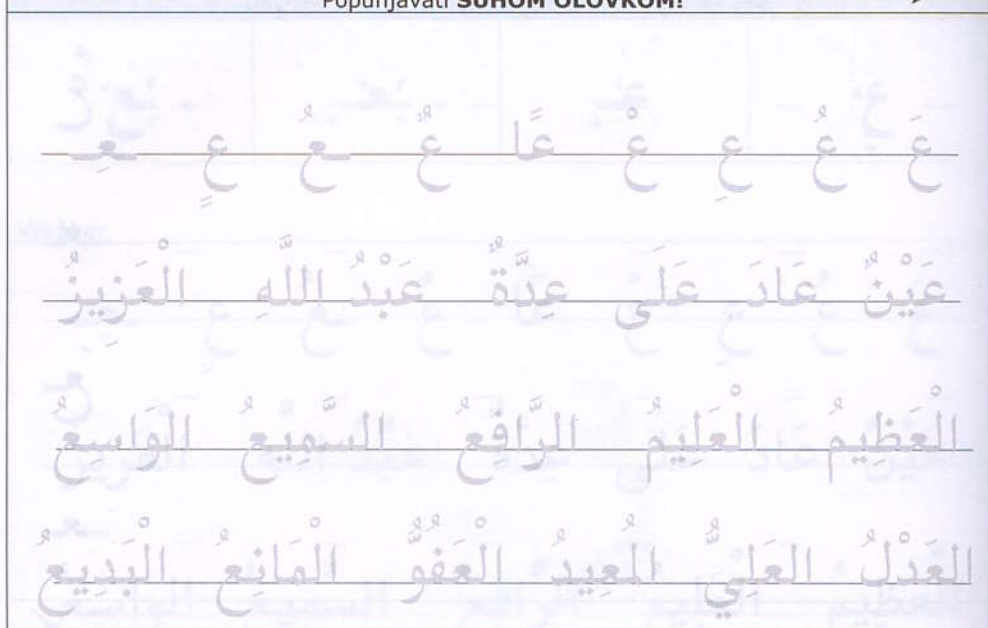 Popunjavati SUHOM OLOVKOM!
عَ عُ عِ عْ عًا عٌ ـعُ عٍ ـعِـ
عَيْنٌ عَادَ عَلَى عِدَّةٌ عَبْدُ اللَّهِ الْعَزِيزُ
الْعَظِيمُ الْعَلِيمُ الرَّافِعُ السَّمِيعُ الْوَاسِعُ
الْعَدْلُ الْعَلِيُّ الْمُعِيدُ الْعَفُوُّ الْمَانِعُ الْبَدِيعُ